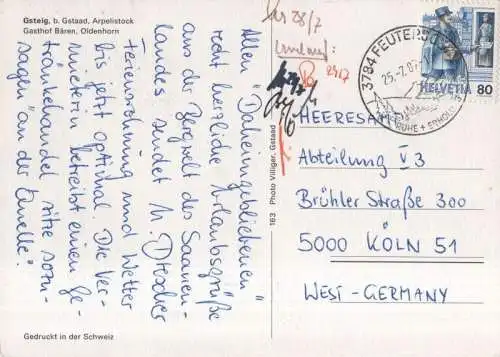 Gsteig, b. Gstaad, Arpelistock
Gasthof Bären, Oldenhorn
Allen "Daheimgebliebenen"
recht herzliche Urlaubsgrüße
aus der Bergwelt des Saanen-
landes sendet M. Drescher
Ferienwohnung und Wetter
bis jetzt optimal. Die Ver-
mieterin betreibt einen Ge-
tränkehandel, sitze sozu-
sagen "an der Quelle".
Gedruckt in der Schweiz
163 Photo Villiger, Gstaad
28/7
Umlauf:
29/7
3784 FEUTERSOEY
25.-7.
RUHE + ERHOLUNG
HELVETIA 80
HEERESAMT
Abteilung V3
Brühler Straße 300
5000 KÖLN 51
WEST-GERMANY